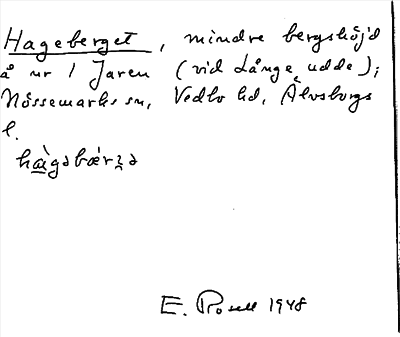 Hageberget, mindre bergshöjd
å nr 1 Jaren (vid Långe udde);
Nössemarks sn, Vedbo hd, Älvsborgs
l.
E. Rosell 1948